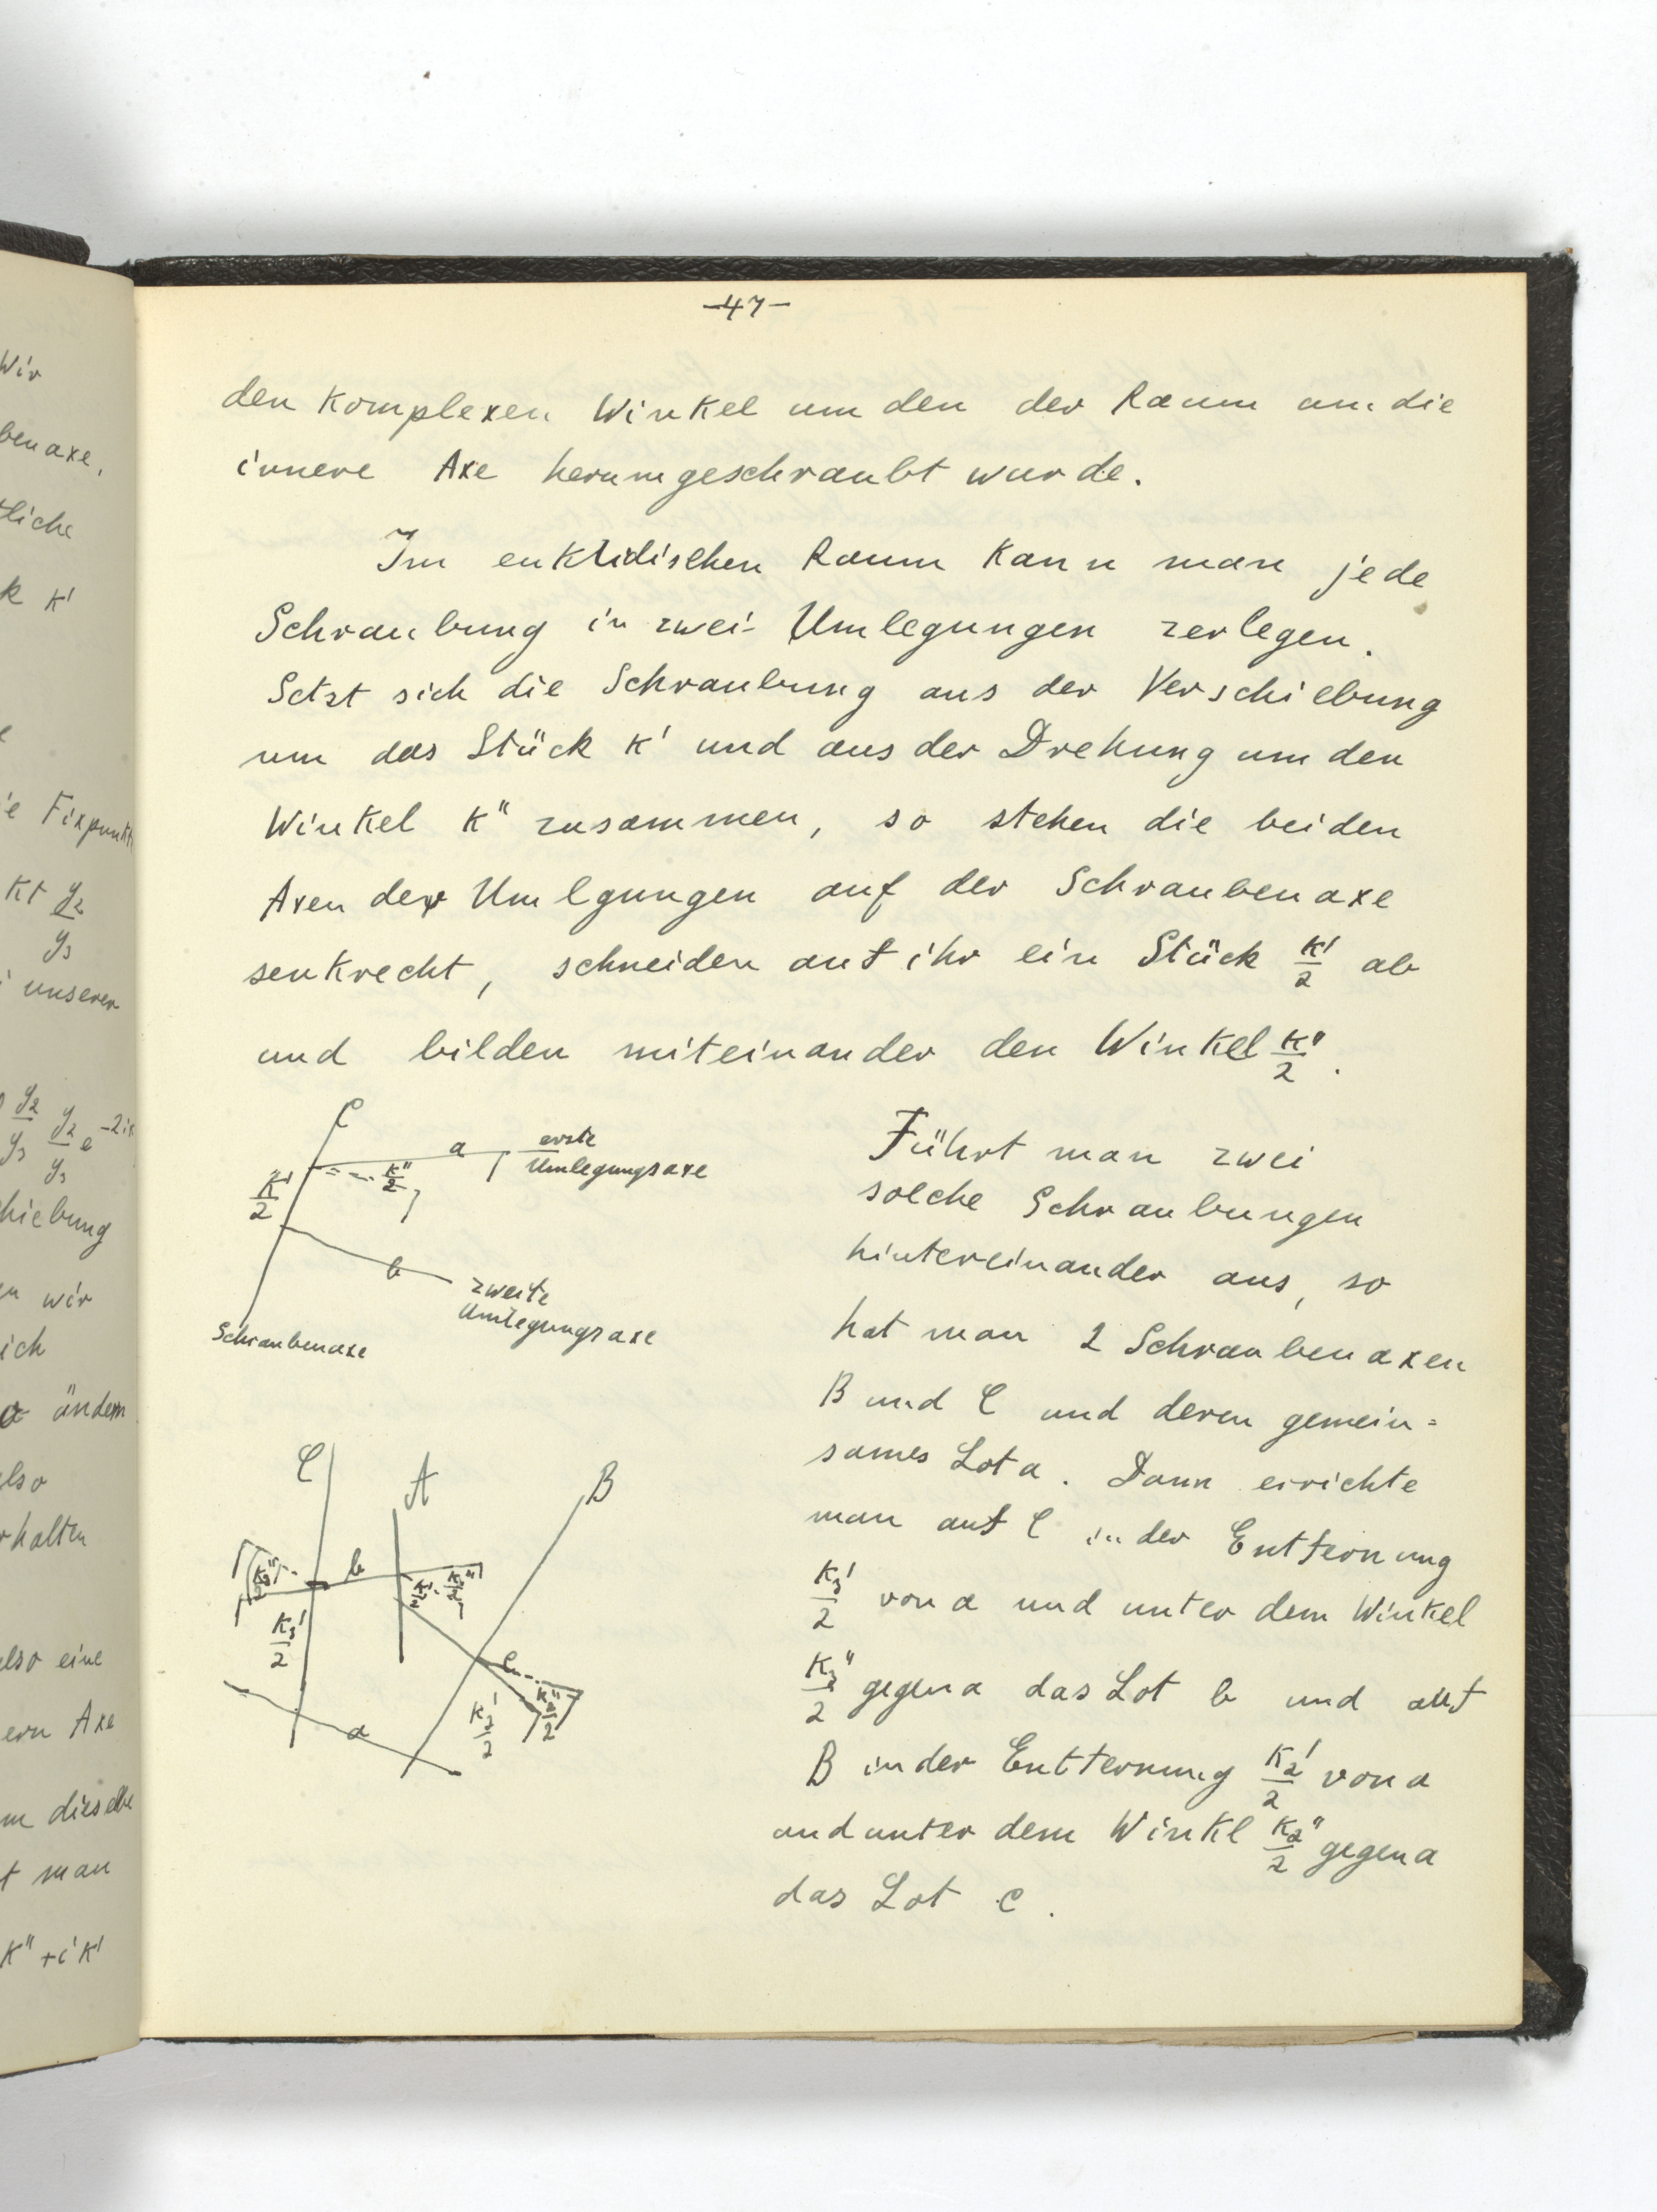 Wir
benaxe,
tliche
k K'
e Fixpunkt
kt y2/y3
i unserer
y2/y3 y2/y3 e^-2iκ
hiebung
en wir
ich
a ändern
also
rhalten
also eine
ern Axe
m dieselbe
t man
K" + i K'
-47-
den komplexen Winkel um den der Raum um die
innere Axe herumgeschraubt wurde.
Im euklidischen Raum kann man jede
Schraubung in zwei Umlegungen zerlegen.
Setzt sich die Schraubung aus der Verschiebung
um das Stück K' und aus der Drehung um den
Winkel K" zusammen, so stehen die beiden
Axen der Umlgungen auf der Schraubenaxe
senkrecht, schneiden auf ihr ein Stück K'/2 ab
und bilden miteinander den Winkel K"/2.
C
a
erste
Umlegungsaxe
K"/2
K'/2
b
zweite
Umlegungsaxe
Schraubenaxe
Führt man zwei
solche Schraubungen
hintereinander aus, so
hat man 2 Schraubenaxen
B und C und deren gemein=
sames Lot a. Dann errichte
man auf C in der Entfernung
K3'/2 von a und unter dem Winkel
K3"/2 gegen a das Lot b und auf
B in der Entfernung K2'/2 von a
und unter dem Winkl K2"/2 gegen a
das Lot c.
C
A
B
K3"/2
b
K3'/2
c
K2'/2
K2"/2
a